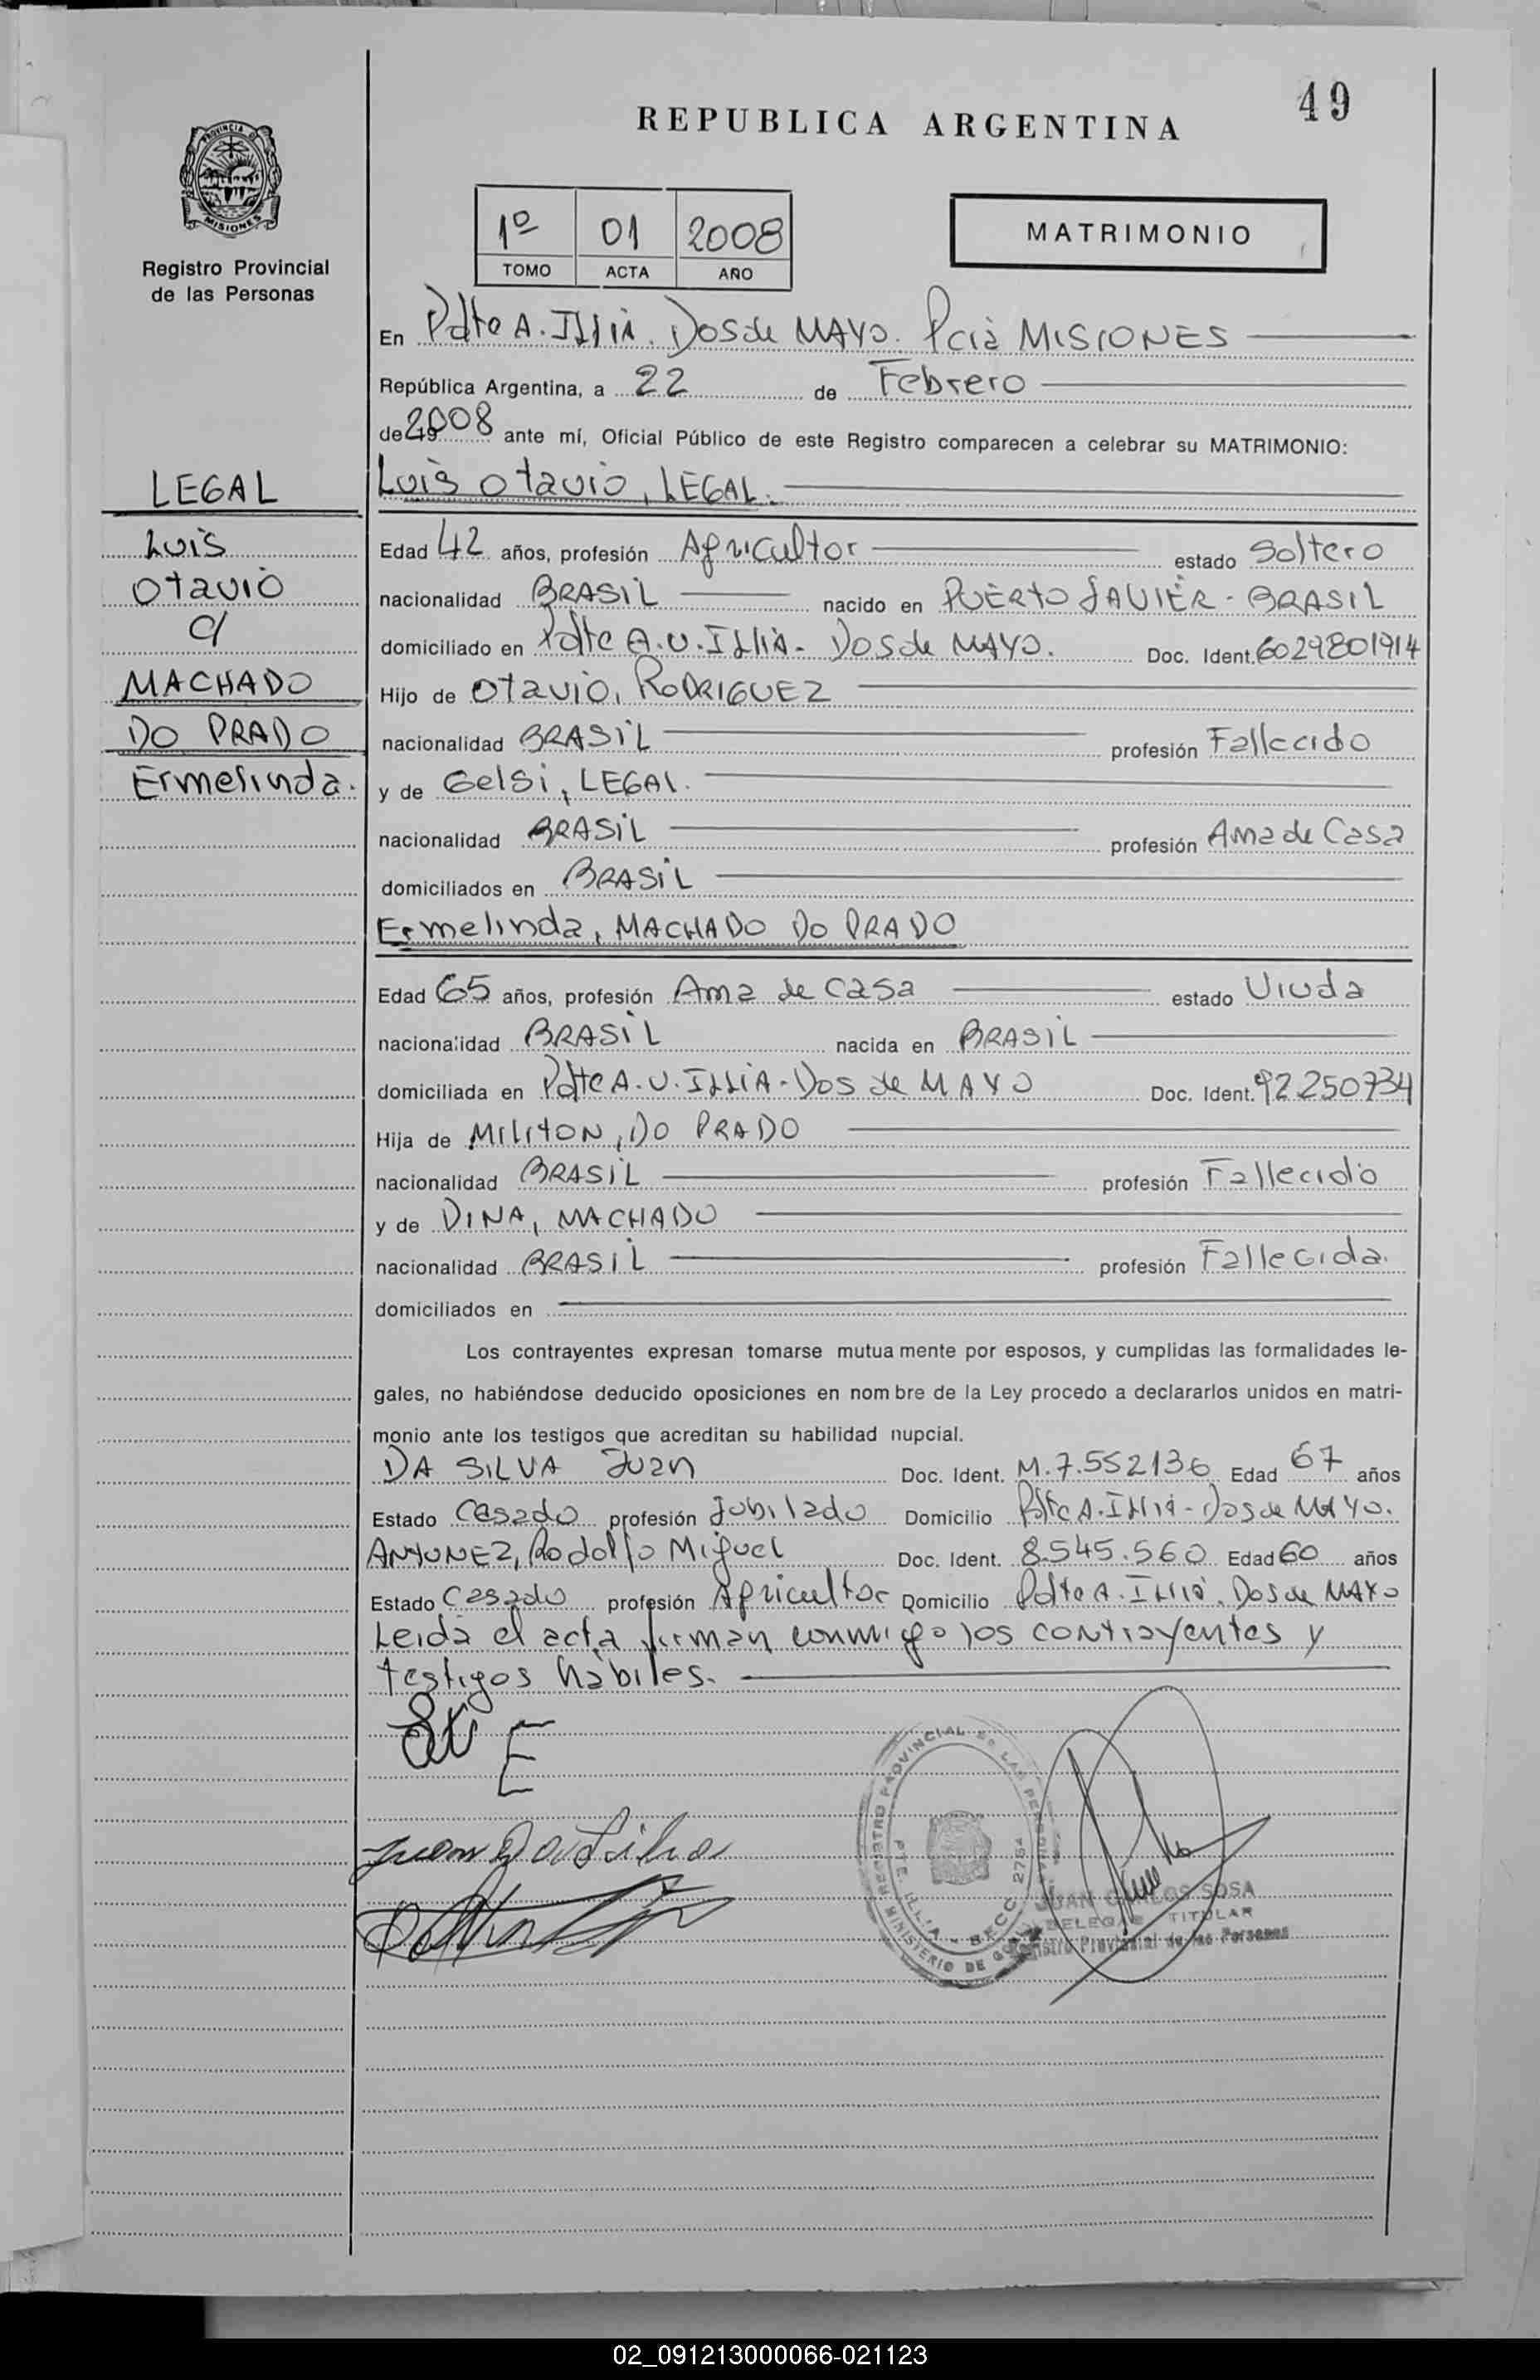 49
REPUBLICA ARGENTINA
PROVINCIA DE
MISIONES
Registro Provincial
de las Personas
1º 01 2008
TOMO ACTA AÑO
MATRIMONIO
En Pdte A. Illia. Dos de MAYO. Pcia MISIONES
República Argentina, a 22 de Febrero
de 2008 ante mí, Oficial Público de este Registro comparecen a celebrar su MATRIMONIO:
LEGAL
Luis
Otavio
c/
MACHADO
DO PRADO
Ermelinda.
Luis Otavio, LEGAL.
Edad 42 años, profesión Agricultor estado Soltero
nacionalidad BRASIL nacido en PUERTO JAVIER - BRASIL
domiciliado en Pdte A.U. Illia - Dos de MAYO. Doc. Ident. 6029801914
Hijo de Otavio, RODRIGUEZ
nacionalidad BRASIL profesión Fallecido
y de Gelsi, LEGAL.
nacionalidad BRASIL profesión Ama de Casa
domiciliados en BRASIL
Ermelinda, MACHADO DO PRADO
Edad 65 años, profesión Ama de Casa estado Viuda
nacionalidad BRASIL nacida en BRASIL
domiciliada en Pdte A.U. Illia - Dos de MAYO Doc. Ident. 92250734
Hija de MILITON, DO PRADO
nacionalidad BRASIL profesión Fallecido
y de DINA, MACHADO
nacionalidad BRASIL profesión Fallecida.
domiciliados en
Los contrayentes expresan tomarse mutua mente por esposos, y cumplidas las formalidades le-
gales, no habiéndose deducido oposiciones en nom bre de la Ley procedo a declararlos unidos en matri-
monio ante los testigos que acreditan su habilidad nupcial.
DA SILVA Juan Doc. Ident. M.7.552136 Edad 67 años
Estado Casado profesión Jubilado Domicilio Pdte A. Illia - Dos de MAYO.
ANTUNEZ, Rodolfo Miguel Doc. Ident. 8.545.560 Edad 60 años
Estado Casado profesión Agricultor Domicilio Pdte A. Illia. Dos de MAYO
Leida el acta firman conmigo los contrayentes y
testigos hábiles.
E
Juan Da Silva
REGISTRO PROVINCIAL DE LAS PERSONAS
PTE. ILLIA - SECC. 2754
MINISTERIO DE
JUAN CARLOS SOSA
DELEGADO TITULAR
Registro Provincial de las Personas
02_091213000066-021123